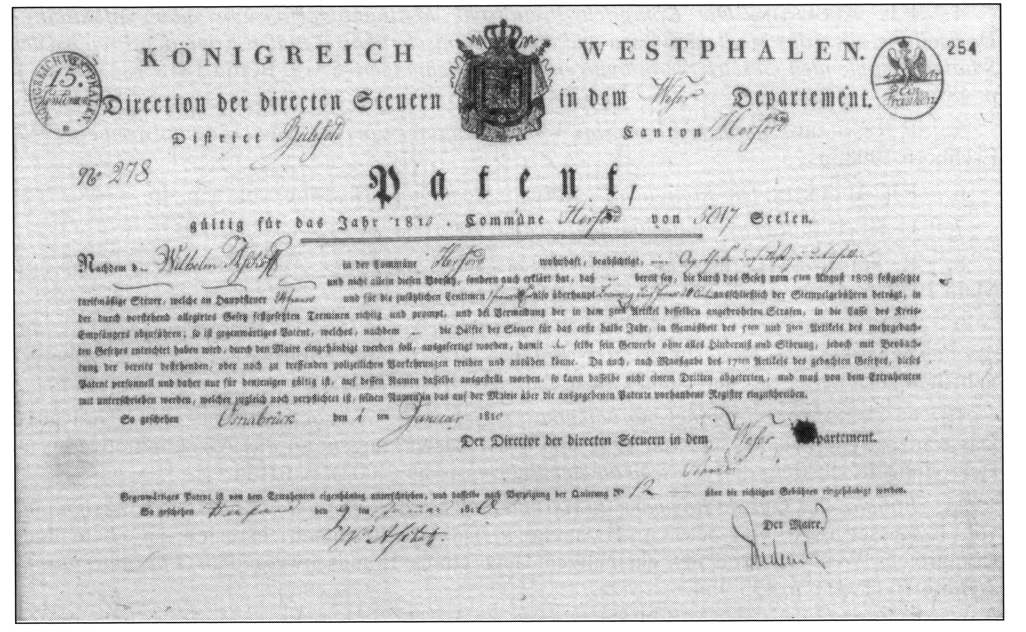 KÖNIGREICH WESTPHALEN.
254
KÖNIGREICH WESTPHALEN.
15.
Direction der directen Steuern in dem Weser Departement.
District Bielefeld Canton Herford
No 278
Patent,
gültig für das Jahr 1810. Commüne Herford von 5017 Seelen.
Nachdem d Wilhelm Aschoff in der Commüne Herford wohnhaft, beabsichtigt,
und nicht allein diesen Vorsatz, sondern auch erklärt hat, daß bereit sey, die durch das Gesetz vom 5ten August 1808 festgesetzte
tarifmäßige Steuer, welche an Hauptsteuer und für die zusätzlichen Centimen also überhaupt ausschließlich der Stempelgebühren beträgt, in
der durch vorstehend allegirtes Gesetz festgesetzten Terminen richtig und prompt, und bei Vermeidung der in dem Artikel desselben angedrohten Strafen, in die Casse des Kreis-
Empfängers abzuführen; so ist gegenwärtiges Patent, welches, nachdem — die Hälfte der Steuer für das erste halbe Jahr, in Gemäßheit des und Artikels des mehrgedach-
ten Gesetzes entrichtet haben wird, durch den Maire eingehändigt werden soll, ausgefertigt worden, damit selbe sein Gewerbe ohne alles Hinderniß und Störung, jedoch mit Beobach-
tung der bereits bestehenden, oder noch zu treffenden polizeilichen Vorkehrungen treiben und ausüben könne. Da auch, nach Maaßgabe des 17ten Artikels des gedachten Gesetzes, dieses
Patent personnell und daher nur für denjenigen gültig ist, auf dessen Namen dasselbe ausgestellt worden, so kann dasselbe nicht einem Dritten abgetreten, und muß von dem Extrahenten
mit unterschrieben werden, welcher zugleich noch verpflichtet ist, seinen Namen in das auf der Mairie über die ausgegebenen Patente vorhandene Register einzuschreiben.
So geschehen Osnabrück den 1 ten Januar 1810
Der Director der directen Steuern in dem Weser Departement.
Gegenwärtiges Patent ist von dem Extrahenten eigenhändig unterschrieben, und dasselbe nach Vorzeigung der Quitung No 12 über die richtigen Gebühren eingehändigt worden.
So geschehen Herford den 9 ten Januar 1810
W. Aschoff.
Der Maire.